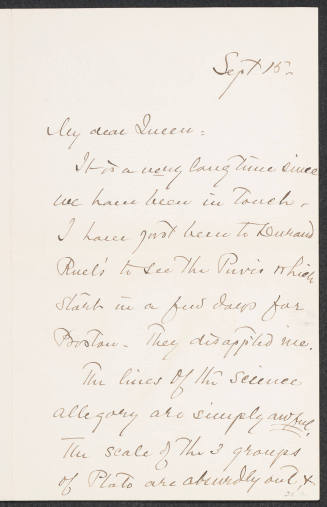 Sept 15 -
My dear Queen:
It is a very long time since
we have been in touch -
I have just been to Durand
Ruel's to see the Puvis which
start in a few days for
Boston - They disapp'ted me.
The lines of the Science
allegory are simply awful.
The scale of the 3 groups
of Plato are absurdly out! &